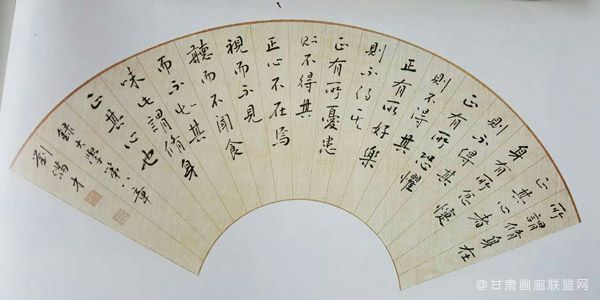 所謂脩身在
正其心者
身有所忿懥
則不得其
正有所恐懼
則不得其
正有所好樂
則不得其
正有所憂患
則不得其
正心不在焉
視而不見
聽而不聞食
而不知其
味此謂脩身
正其心也
錄大學第八章
劉滿才
@甘肃画廊联盟网